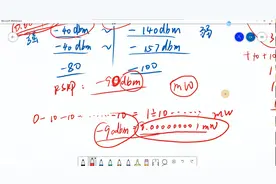 -40dbm ~ -140dbm 弱
-40dbm ~ -157dbm
-80 -100
RSRP: -90dbm mW
0-10-10-......-10 = 1÷10...... mW
-90dbm = 0.000000001mW